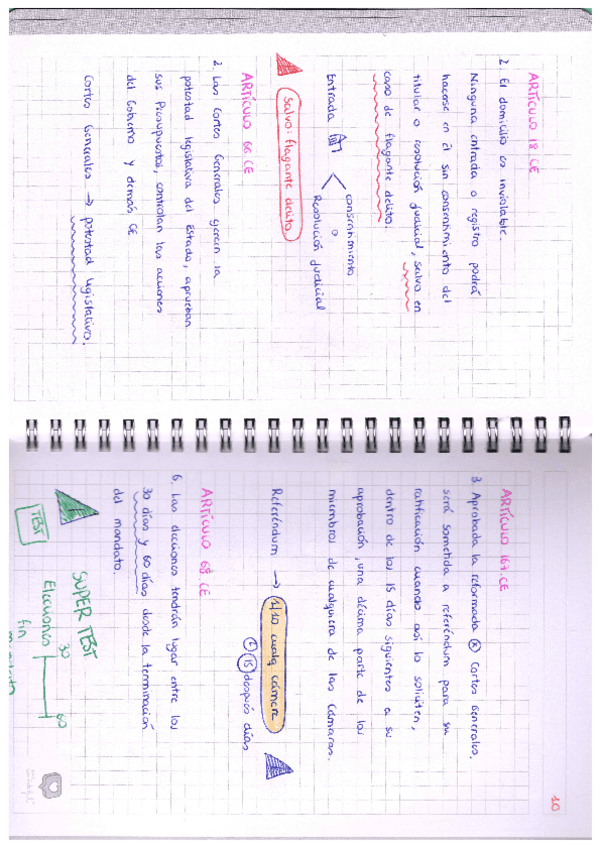 ARTÍCULO 18 CE
2. El domicilio es inviolable.
Ninguna entrada o registro podrá
hacerse en él sin consentimiento del
titular o resolución judicial, salvo en
caso de flagante delito.
Entrada
consentimiento
o
Resolución judicial
Salvo: flagante delito
ARTÍCULO 66 CE
2. Las Cortes Generales ejercen la
potestad legislativa del Estado, aprueban
sus Presupuestos, controlan las acciones
del Gobierno y demás CE
Cortes Generales → potestad legislativa.
10
ARTÍCULO 167 CE
3. Aprobada la reformada Ⓧ Cortes Generales,
será sometida a referéndum para su
ratificación cuando así lo soliciten,
dentro de los 15 días siguientes a su
aprobación, una décima parte de los
miembros de cualquiera de las Cámaras.
Referéndum → 1/10 cualq cámara
15 después días
ARTÍCULO 68 CE
6. Las elecciones tendrán lugar entre los
30 días y 60 días desde la terminación
del mandato.
SUPER TEST
TEST
Elecciones 30 60
fin